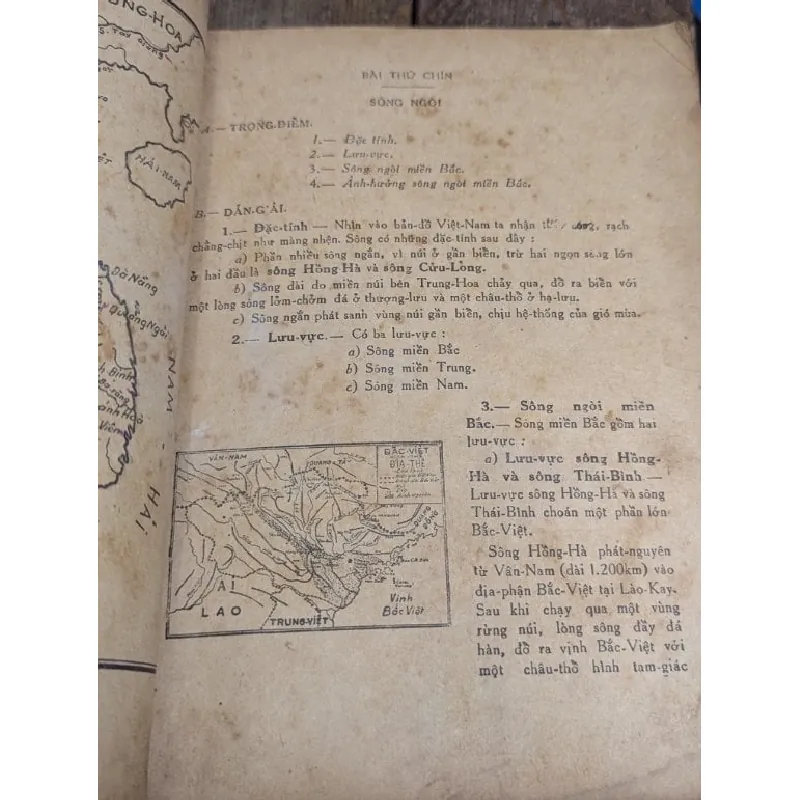 ONG-HOA
HẢI-NAM
Đà Nẵng
Quảng Ngãi
NAM - HẢI
BÀI THỨ CHÍN
SÔNG NGÒI
A.— TRỌNG-ĐIỂM.
1.— Đặc tính.
2.— Lưu-vực.
3.— Sông ngòi miền Bắc.
4.— Ảnh-hưởng sông ngòi miền Bắc.
B.— DÀN-GIẢI.
1.— Đặc-tính — Nhìn vào bản-đồ Việt-Nam ta nhận rạch
chằng-chịt như màng nhện. Sông có những đặc-tính sau đây :
a) Phần nhiều sông ngắn, vì núi ở gần biển, trừ hai ngọn sông lớn
ở hai đầu là sông Hồng-Hà và sông Cửu-Long.
b) Sông dài do miền núi bên Trung-Hoa chảy qua, đổ ra biển với
một lòng sông lởm-chởm đá ở thượng-lưu và một châu-thổ ở hạ-lưu.
c) Sông ngắn phát sanh vùng núi gần biển, chịu hệ-thống của gió mùa.
2.— Lưu-vực.— Có ba lưu-vực :
a) Sông miền Bắc
b) Sông miền Trung.
c) Sông miền Nam.
3.— Sông ngòi miền
Bắc.— Sông miền Bắc gồm hai
lưu-vực :
a) Lưu-vực sông Hồng-
Hà và sông Thái-Bình —
Lưu-vực sông Hồng-Hà và sông
Thái-Bình choán một phần lớn
Bắc-Việt.
Sông Hồng-Hà phát-nguyên
từ Vân-Nam (dài 1.200km) vào
địa-phận Bắc-Việt tại Lào-Kay.
Sau khi chạy qua một vùng
rừng núi, lòng sông đầy đá
hàn, đổ ra vịnh Bắc-Việt với
một châu-thổ hình tam-giác
VÂN-NAM
BẮC-VIỆT
ĐỊA-THẾ
AI
LAO
TRUNG-VIỆT
Vịnh
Bắc Việt